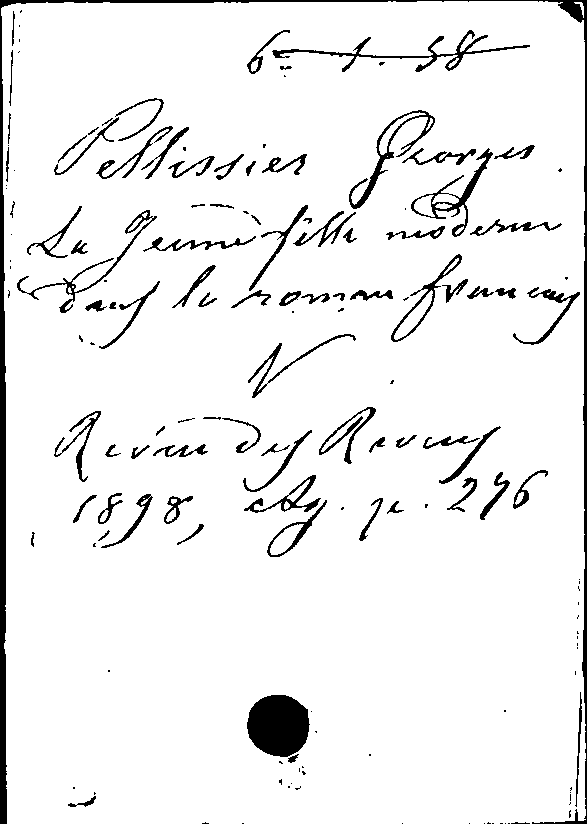 6= 1. 58
Pellissier Georges.
La Jeune fille moderne
dans le roman français
V
Revue des Revues
1898, Ag. p. 276